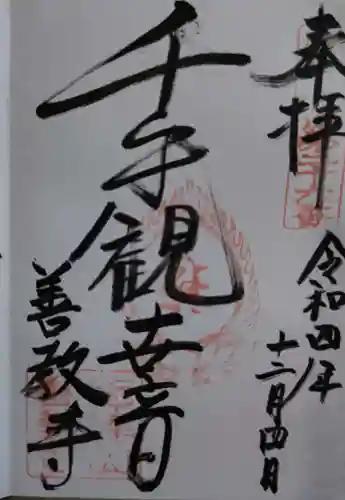 奉拝
令和四年
十二月四日
千手観世音
善教寺